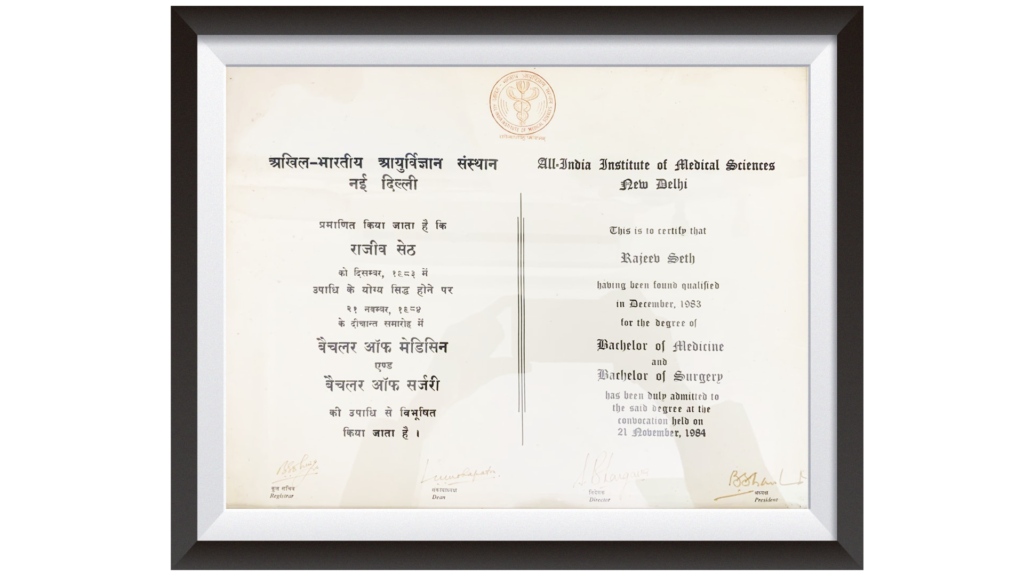 अखिल-भारतीय आयुर्विज्ञान संस्थान
नई दिल्ली
प्रमाणित किया जाता है कि
राजीव सेठ
को दिसम्बर, १९८३ में
उपाधि के योग्य सिद्ध होने पर
२१ नवम्बर, १९८४
के दीक्षान्त समारोह में
बैचलर ऑफ मेडिसिन
एण्ड
बैचलर ऑफ सर्जरी
की उपाधि से विभूषित
किया जाता है ।
All-India Institute of Medical Sciences
New Delhi
This is to certify that
Rajeev Seth
having been found qualified
in December, 1983
for the degree of
Bachelor of Medicine
and
Bachelor of Surgery
has been duly admitted to
the said degree at the
convocation held on
21 November, 1984
कुल सचिव
Registrar
Dean
निदेशक
Director
President